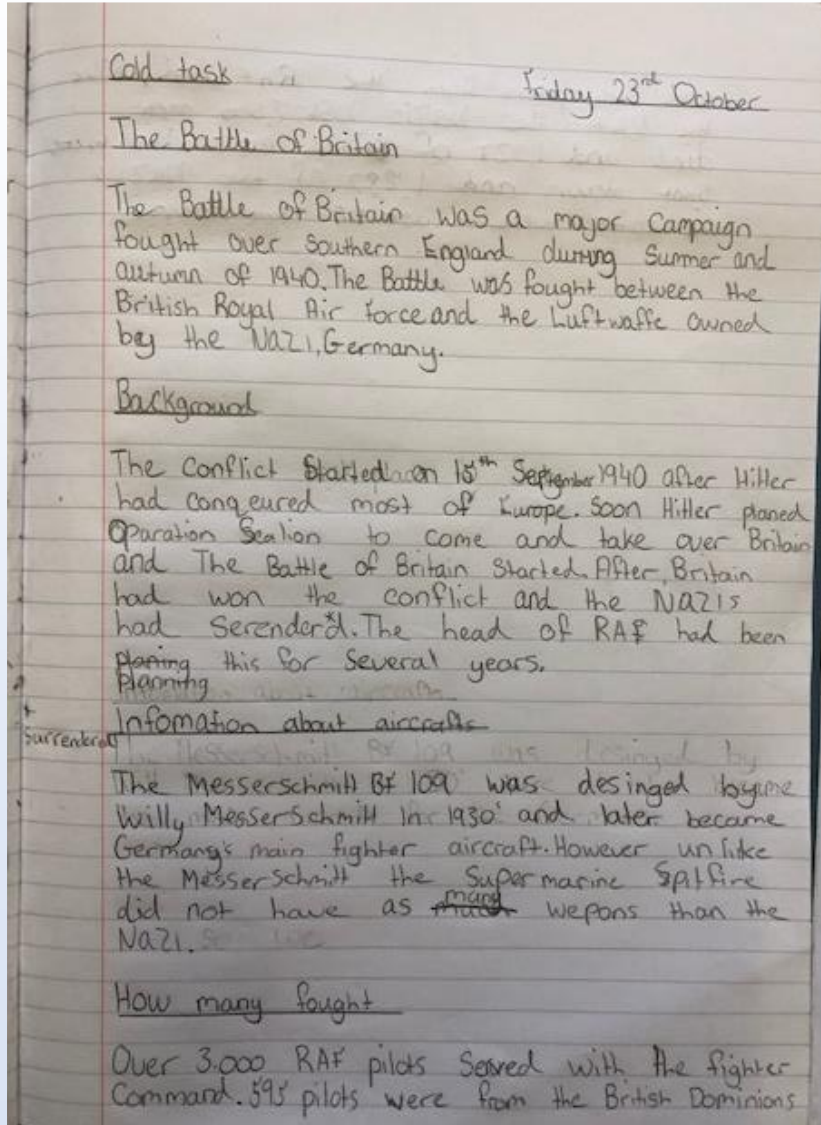 Cold task
Friday 23rd October
The Battle of Britain
The Battle of Britain was a major Campaign
fought over Southern England during Summer and
autumn of 1940. The Battle was fought between the
British Royal Air force and the Luftwaffe owned
by the NAZI, Germany.
Background
The Conflict Started on 15th September 1940 after Hitler
had conqeured most of Europe. Soon Hitler planed
Oparation Sealion to come and take over Britain
and The Battle of Britain Started. After, Britain
had won the conflict and the NAZIS
had Serender*d. The head of RAF had been
planing this for Several years.
planning
Infomation about aircrafts
*
Surrendered
The Messerschmitt Bf 109 was desinged by
Willy Messerschmitt In 1930' and later became
Germany's main fighter aircraft. However unlike
the Messerschmitt the Supermarine Spitfire
did not have as many wepons than the
NAZI.
How many fought
Over 3.000 RAF pilots Served with the fighter
Command. 595 pilots were from the British Dominions